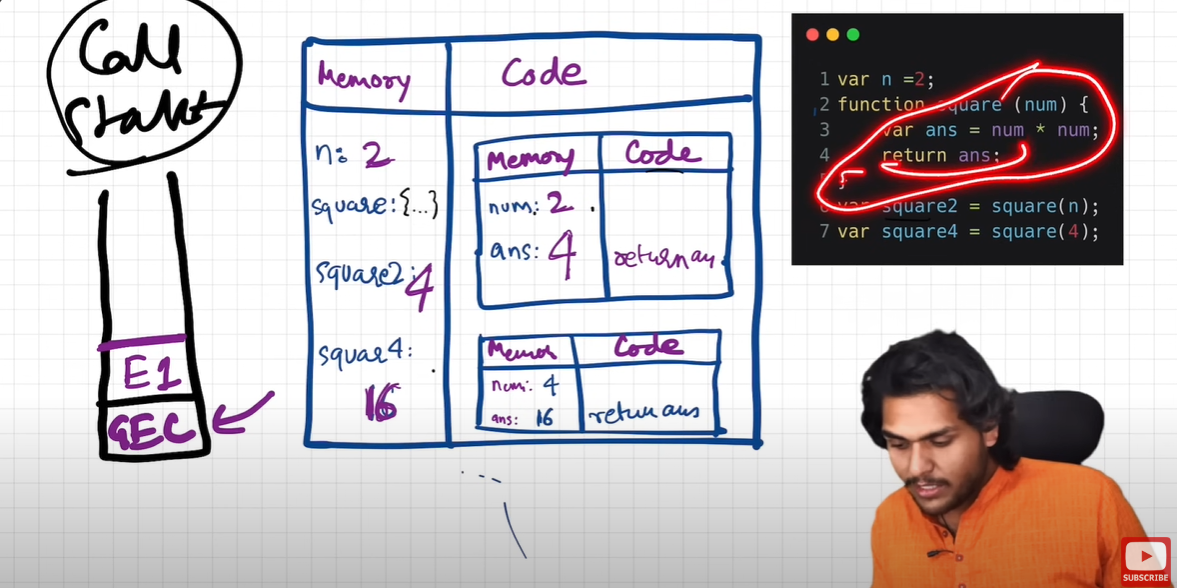 Call
Stak
E1
GEC
Memory
Code
n: 2
square:{...}
square2: 4
squar4:
16
Memory
Code
num: 2
ans: 4
return an
Code
num: 4
ans: 16
return ans
1 var n =2;
2 function square (num) {
3 var ans = num * num;
4 return ans;
5 }
6 var square2 = square(n);
7 var square4 = square(4);
SUBSCRIBE